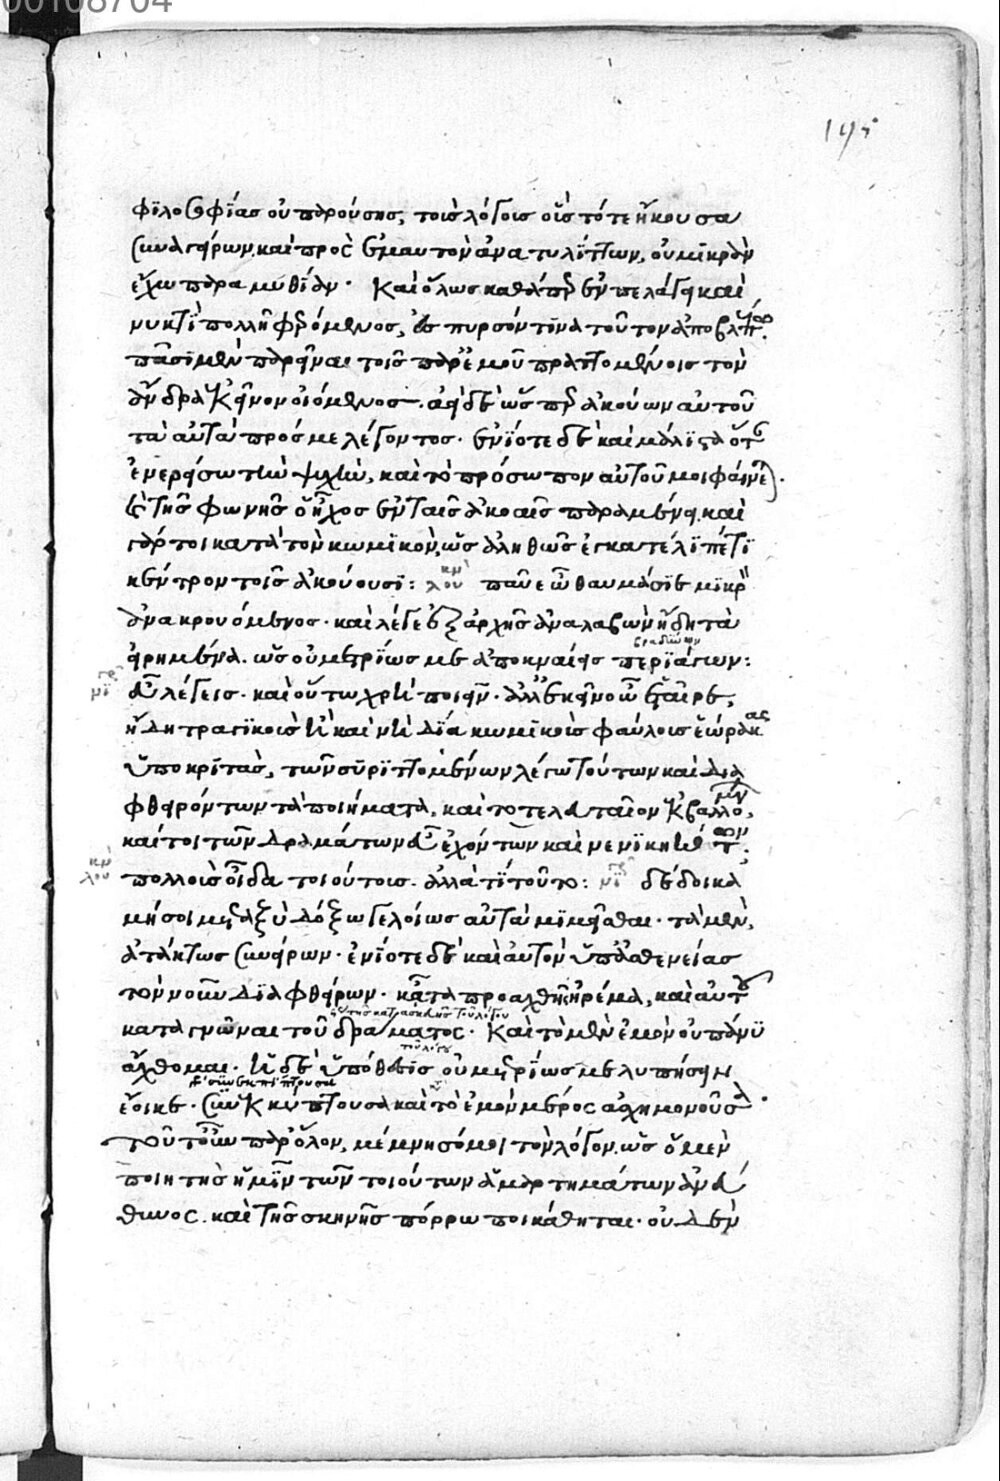 00108704
φιλοσοφίας οὐ παρούσης, τοῖς λόγοις οὓς τότε ἤκουσα
συναγείρων, καὶ πρὸς ἐμαυτὸν ἀνατυλίττων, οὐ μικρὰν
ἔχω παραμυθίαν· καὶ ὅλως καθάπερ ἐν πελάγει καὶ
νυκτὶ πολλῇ φερόμενος, ἐς πυρσόν τινα τοῦτον ἀποβλέπω.
πᾶσι μὲν παρεῖναι τοῖς παρ' ἐμοῦ πραττομένοις τὸν
ἄνδρα ἐκεῖνον οἰόμενος· ἀεὶ δὲ ὥσπερ ἀκούων αὐτοῦ
τὰ αὐτὰ πρός με λέγοντος· ἐνίοτε δὲ καὶ μάλιστα ὅταν
ἐνερείσω τὴν ψυχήν, καὶ τὸ πρόσωπον αὐτοῦ μοι φαίνεται.
καὶ τῆς φωνῆς ὁ ἦχος ἐν ταῖς ἀκοαῖς παραμένει. καὶ
γάρ τοι κατὰ τὸν κωμικὸν, ὡς ἀληθῶς ἐγκατέλιπέ τι
κέντρον τοῖς ἀκούουσι: λου παῦε ὦ θαυμάσιε μικρὸν
ἀνακρουόμενος· καὶ λέγε ἐξ ἀρχῆς ἀναλαβὼν ἤδη τὰ
εἰρημένα. ὡς οὐ μετρίως με ἀποκναίεις περιάγων:
νι εὖ λέγεις· καὶ οὕτω χρὴ ποιεῖν· ἀλλ' ἐκεῖνο ὦ ἑταῖρε,
ἤδη τραγικοὺς ἢ καὶ νὴ Δία κωμικοὺς φαύλους ἑώρακας
ὑποκριτάς, τῶν συριττομένων λέγω τούτων καὶ δια
φθειρόντων τὰ ποιήματα, καὶ τὸ τελευταῖον ἐκβαλλομένων,
καίτοι τῶν δραμάτων εὖ ἐχόντων καὶ νενικηκότων.
λου πολλοὺς οἶδα τοιούτους. ἀλλὰ τί τοῦτο: νι δέδοικα
μή σοι μεταξὺ δόξω γελοίως αὐτὰ μιμεῖσθαι· τὰ μὲν,
ἀτάκτως συνείρων· ἐνίοτε δὲ καὶ αὐτὸν ὑπ' ἀσθενείας
τὸν νοῦν διαφθείρων· κᾆτα προαχθῇς ἠρέμα, καὶ αὐτοῦ
καταγνῶναι τοῦ δράματος· καὶ τὸ μὲν ἐμὸν οὐ πάνυ
ἄχθομαι· ἡ δὲ ὑπόθεσις οὐ μετρίως με λυπήσειν
ἔοικε· συνεκπίπτουσα καὶ τὸ ἐμὸν μέρος ἀσχημονοῦσα.
τοῦτ' οὖν παρ' ὅλον, μέμνησό μοι τὸν λόγον. ὡς ὁ μὲν
ποιητὴς ἡμῖν τῶν τοιούτων ἁμαρτημάτων ἀνεύ
θυνος. καὶ τῆς σκηνῆς πόρρω ποι κάθηται· οὐδὲν